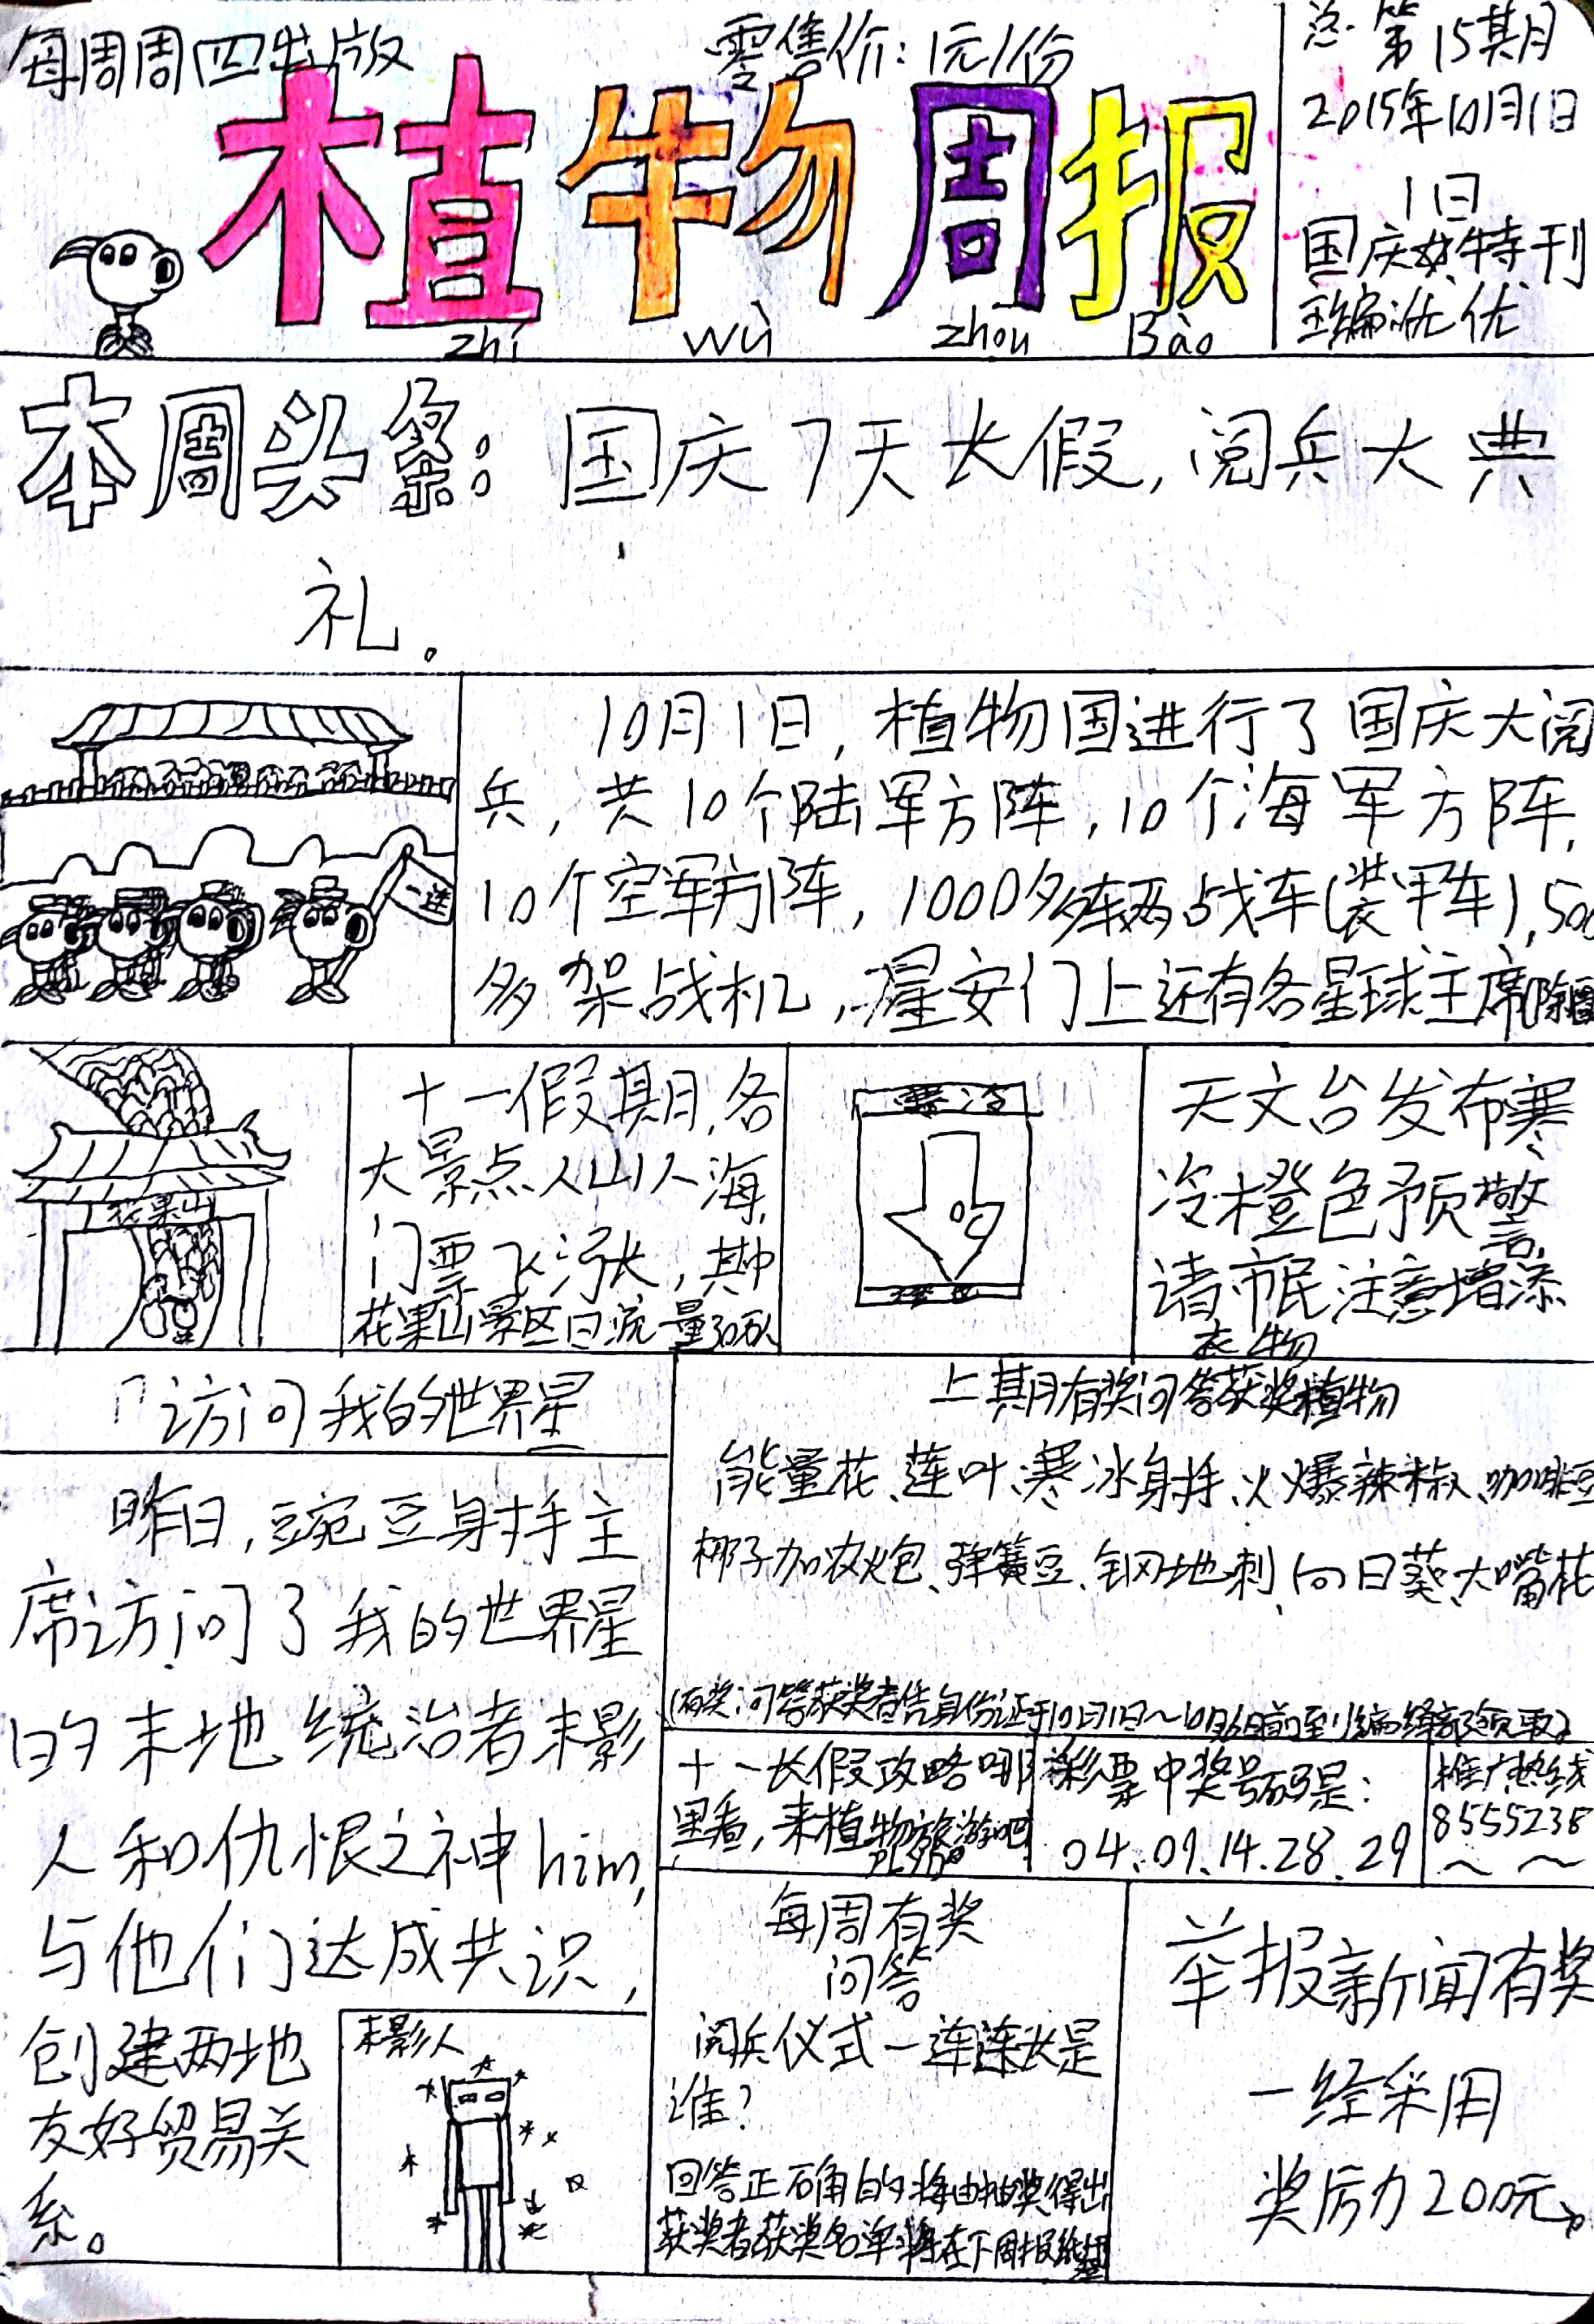 每周周四出版
零售价：1元/份
总第15期
2015年10月1日
1日
国庆特刊
主编：优优
植物周报
zhí wù zhōu Bào
本周头条：国庆7天长假，阅兵大典
礼。
10月1日，植物国进行了国庆大阅
兵，共10个陆军方阵，10个海军方阵，
10个空军方阵，1000多辆战车(装甲车)，500
多架战机，星安门上还有各星球主席
一连
花果山
十一假期，各
大景点人山人海，
门票飞涨，其中
花果山景区日流量30万人
寒冷
℃
天文台发布寒
冷橙色预警，
请市民注意增添
衣物
访问我的世界星
昨日，豌豆射手主
席访问了我的世界星
的末地统治者末影
人和仇恨之神him，
与他们达成共识，
创建两地
友好贸易关
系。
末影人
上期有奖问答获奖植物
能量花、莲叶、寒冰射手、火爆辣椒、咖啡豆
椰子加农炮、弹簧豆、钢地刺、向日葵、大嘴花
(有奖问答获奖者凭身份证于10月1日～10月6日前至编辑部领取)
十一长假攻略哪
里看，来植物旅游吧
彩票中奖号码是：
04.09.14.28.29
推广热线
8555238
～ ～
每周有奖
问答
阅兵仪式一连连长是
谁？
回答正确的将由抽奖得出
获奖者获奖名单将在下周报纸刊登
举报新闻有奖
一经采用
奖励200元。